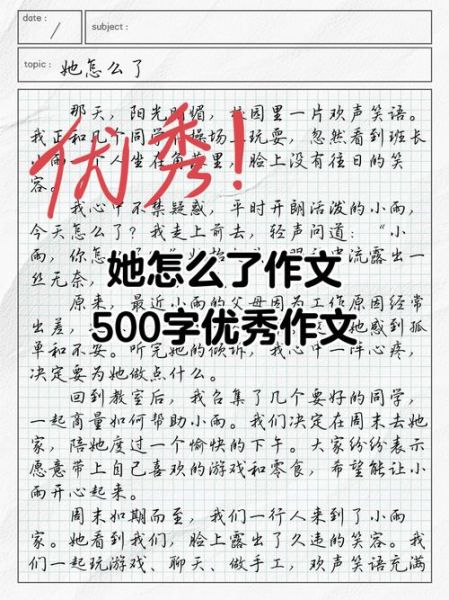 date :
subject :
topic : 她怎么了
那天，阳光明媚，校园里一片欢声笑语。
我正和几个同学在操场上玩耍，忽然看到班长
小雨一个人坐在角落里，脸上没有往日的笑
容。
优秀！
我心中不禁疑惑，平时开朗活泼的小雨，
今天怎么了？我走上前去，轻声问道：“小
雨，你怎
流露出一
丝无奈，
她怎么了作文
原来，最近小雨的父母因为工作原因经常
出差，
她感到孤
500字优秀作文
单和不安。听完她的倾诉，我心中一阵心疼，
决定要为她做点什么。
回到教室后，我召集了几个要好的同学，
一起商量如何帮助小雨。我们决定在周末去她
家，陪她度过一个愉快的下午。大家纷纷表示
愿意带上自己喜欢的游戏和零食，希望能让小
雨开心起来。
周末如期而至，我们一行人来到了小雨
家。她看到我们，脸上露出了久违的笑容。我
们一起玩游戏、聊天、做手工，欢声笑语充满